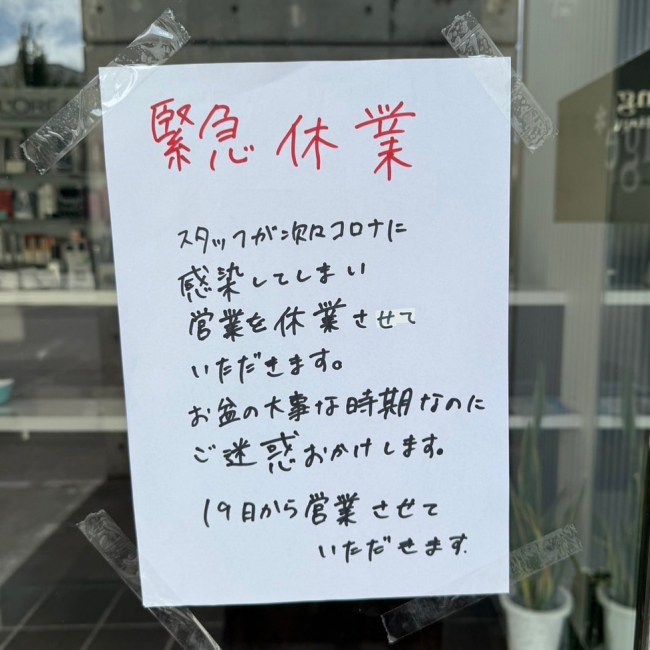 緊急休業
スタッフが次々コロナに
感染してしまい
営業を休業させて
いただきます。
お盆の大事な時期なのに
ご迷惑おかけします。
19日から営業させて
いただせます.
L'OREA